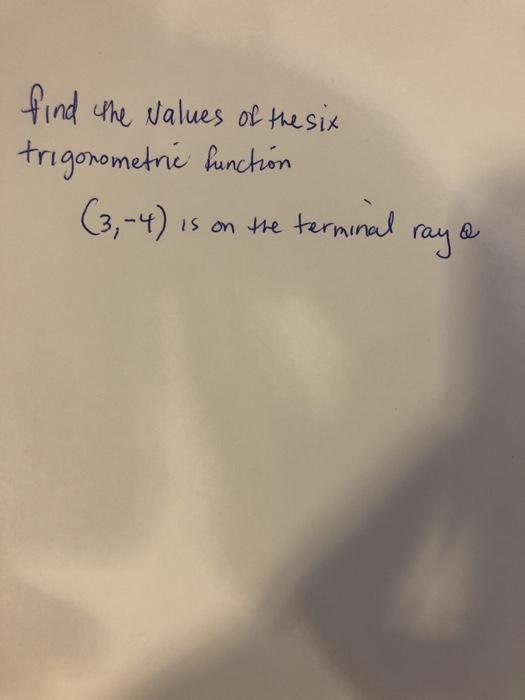 find the values of the six
trigonometric function
(3,-4) is on the terminal ray